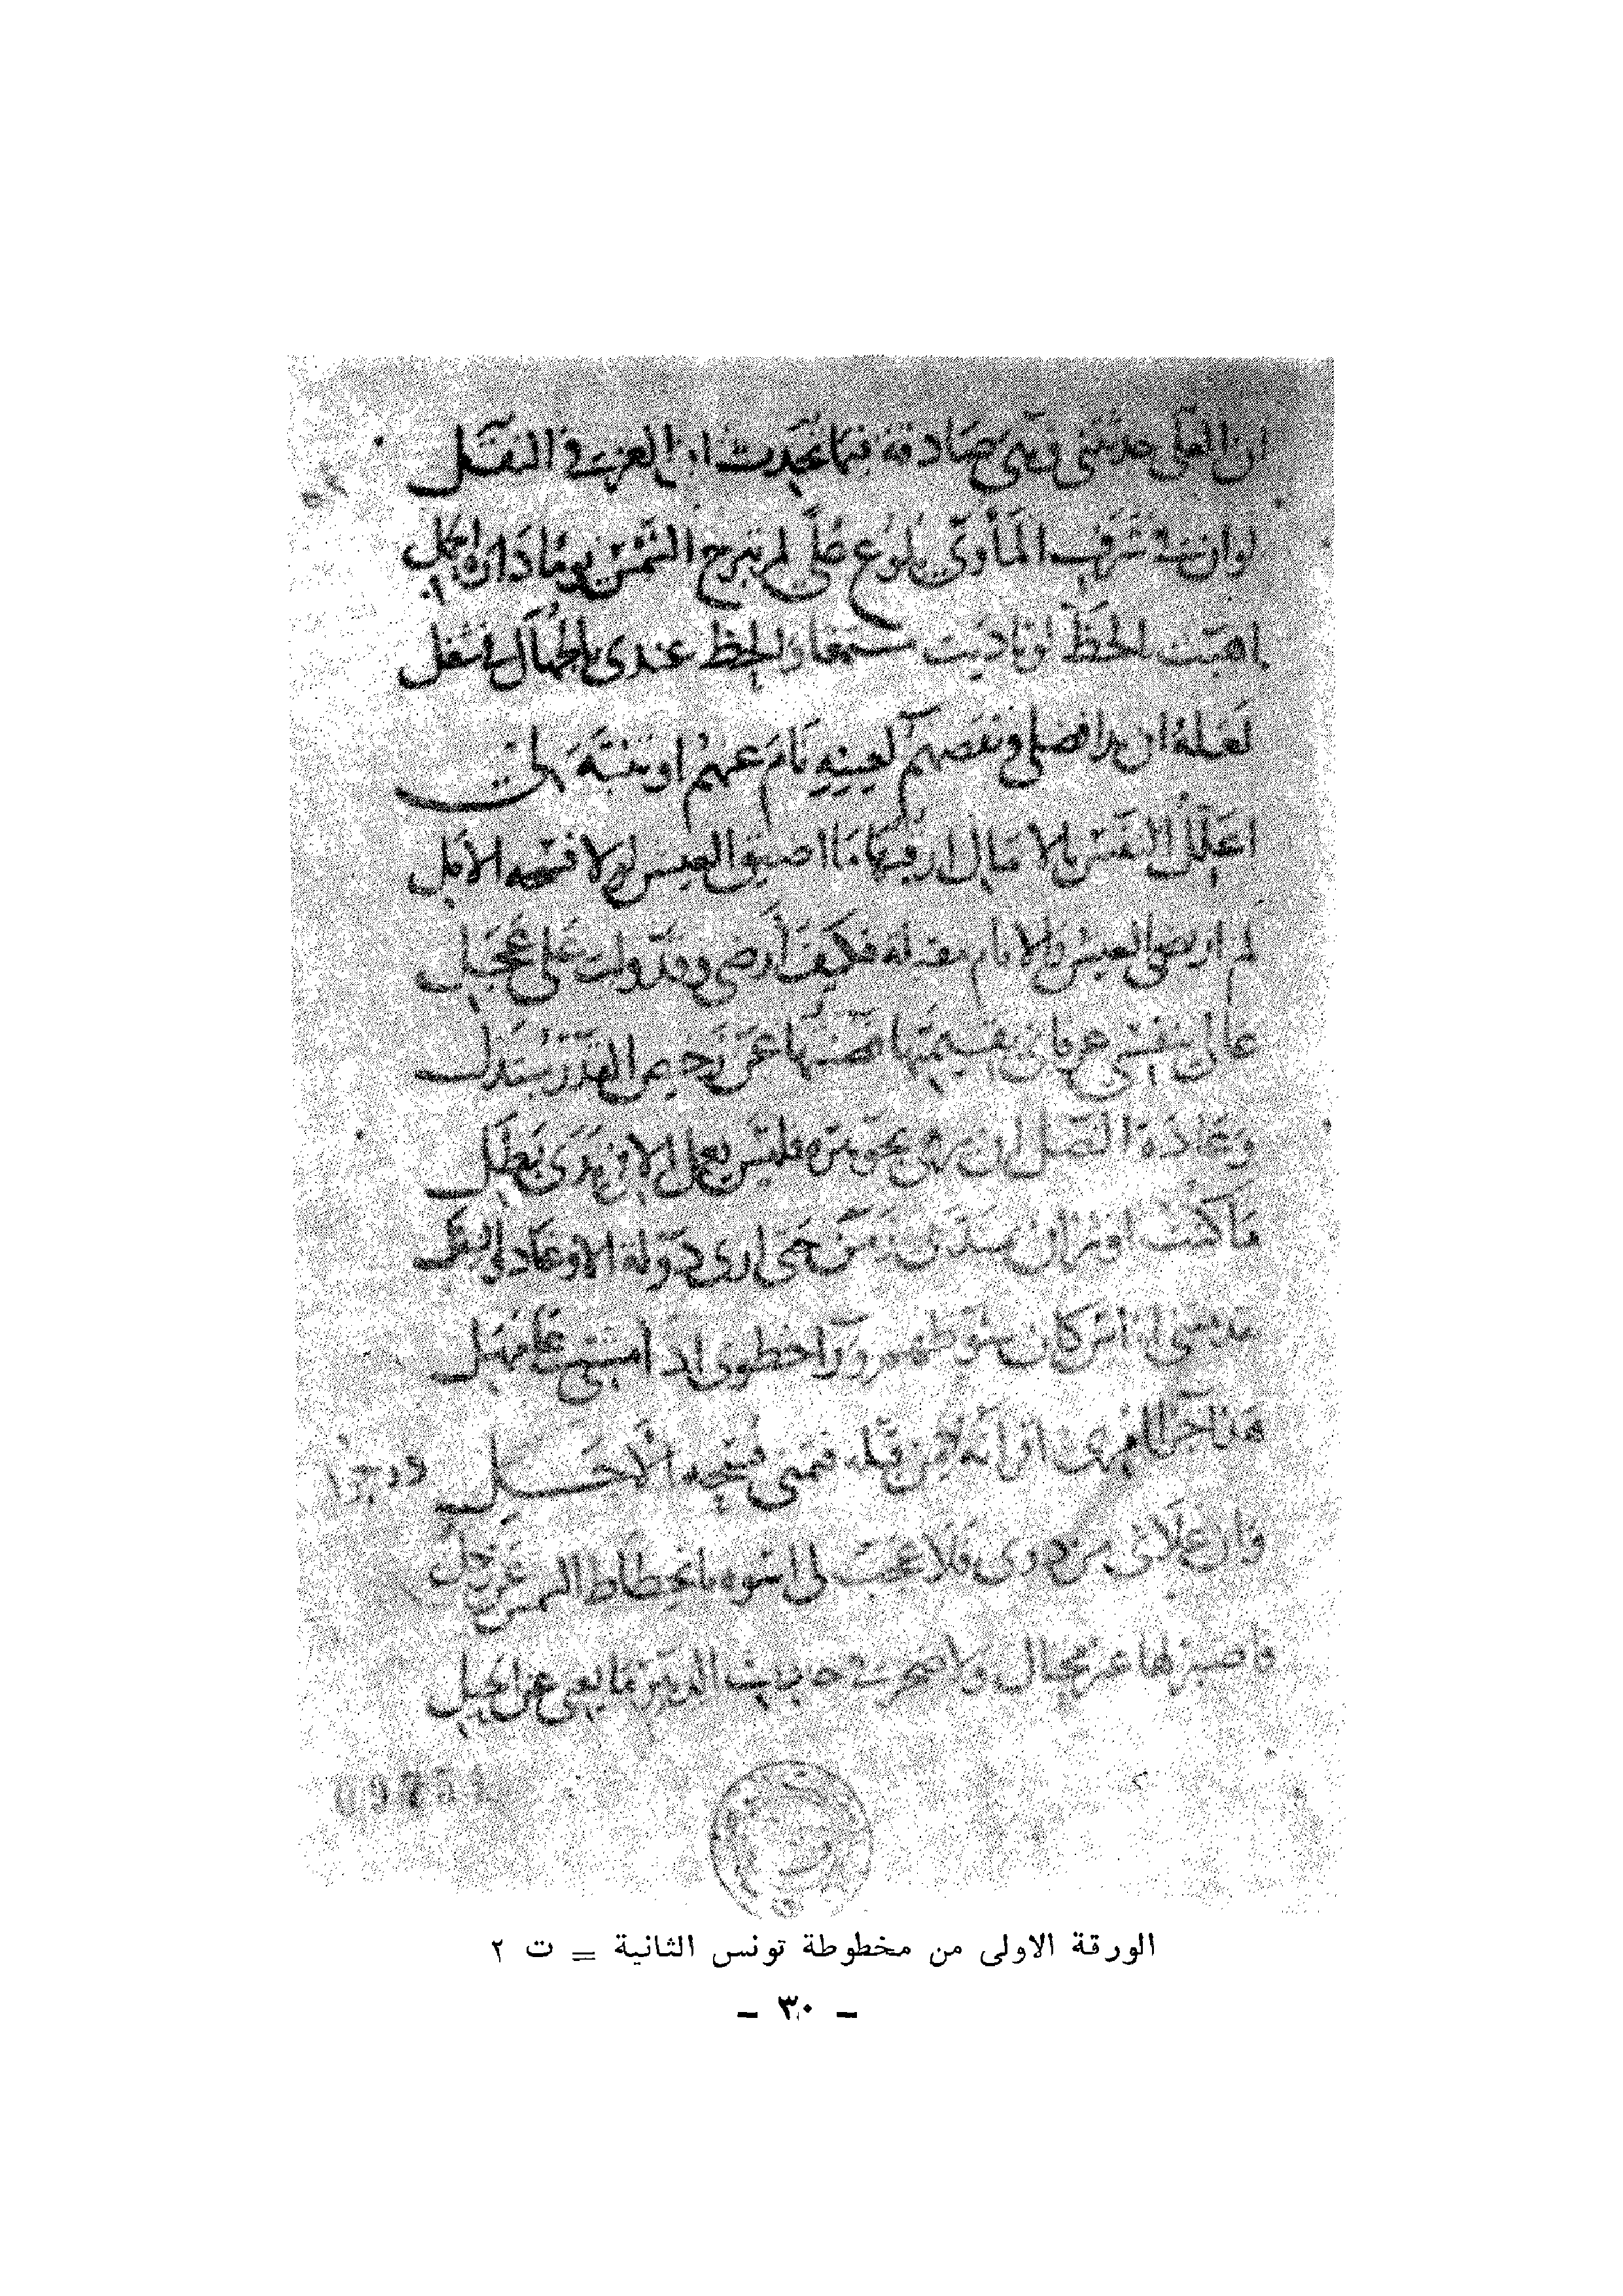 ان العلى حدثتنى وهى صادقة فيما تحدث ان العز فى النقل
لو ان فى شرف المأوى بلوغ على لم تبرح الشمس يوما دارة الحمل
اهبت بالحظ لو ناديت مستمعا والحظ عندى بالجهال فى شغل
لعله ان بدا فضلى ونقصهم لعينه نام عنهم او تنبه لى
اعلل النفس بالامال ارقبها ما اضيق العيش لولا فسحة الامل
لم ارض العيش والايام مقبلة فكيف أرضى وقد ولت على عجل
غالى بنفسى عرفانى بقيمتها فصنتها عن رخيص القدر مبتذل
وعادة النصل ان يزهى بجوهره فليس يعمل الا فى يدى بطل
ما كنت اوثر ان يمتد بى زمنى حتى ارى دولة الاوغاد والسفل
تقدمتنى اناس كان شوطهم ورآ خطوى اذ امشى على مهل
هذا جزاء امرئ اقرانه درجوا من قبله فتمنى فسحة الاجل
وان علانى من دونى فلا عجب لى اسوة بانحطاط الشمس عن زحل
فاصبر لها غير محتال ولا ضجر فى حادث الدهر ما يغنى عن الحيل
09751
الورقة الاولى من مخطوطة تونس الثانية = ت ٢
- ٣٠ -